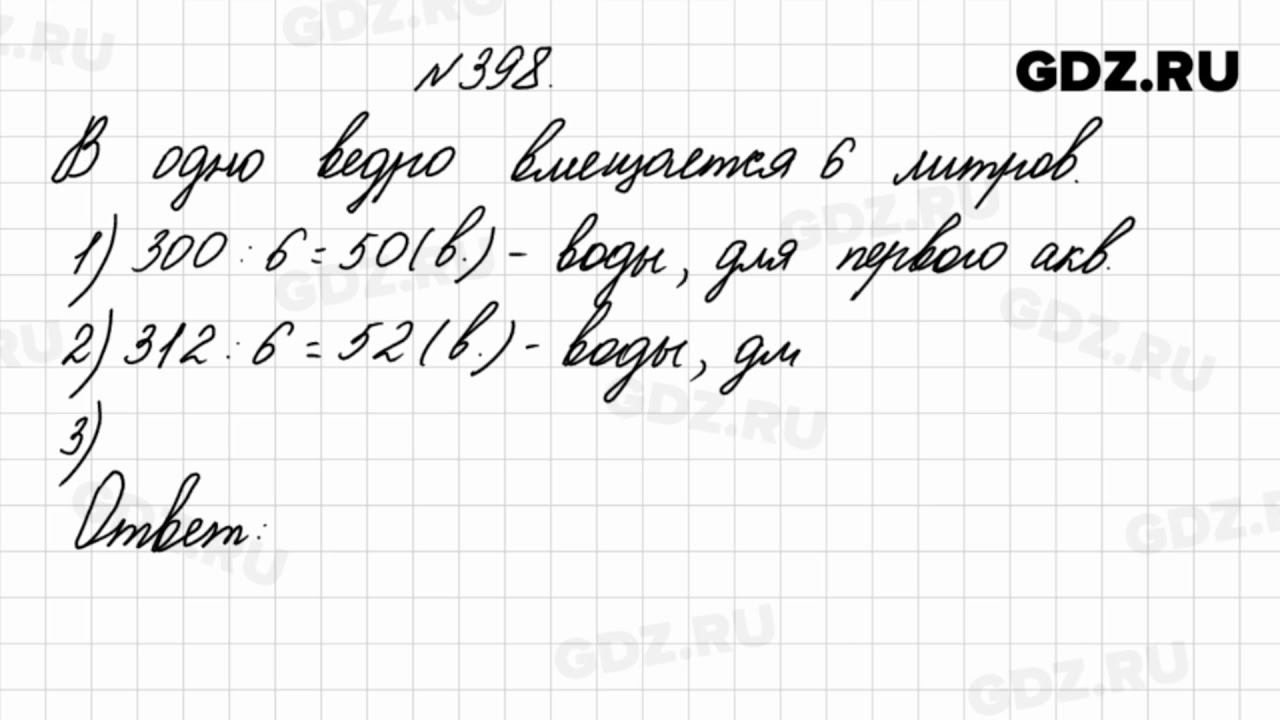 №398.
GDZ.RU
В одно ведро вмещается 6 литров.
1) 300 : 6 = 50 (в.) - воды, для первого акв.
2) 312 : 6 = 52 (в.) - воды, дл
3)
Ответ: